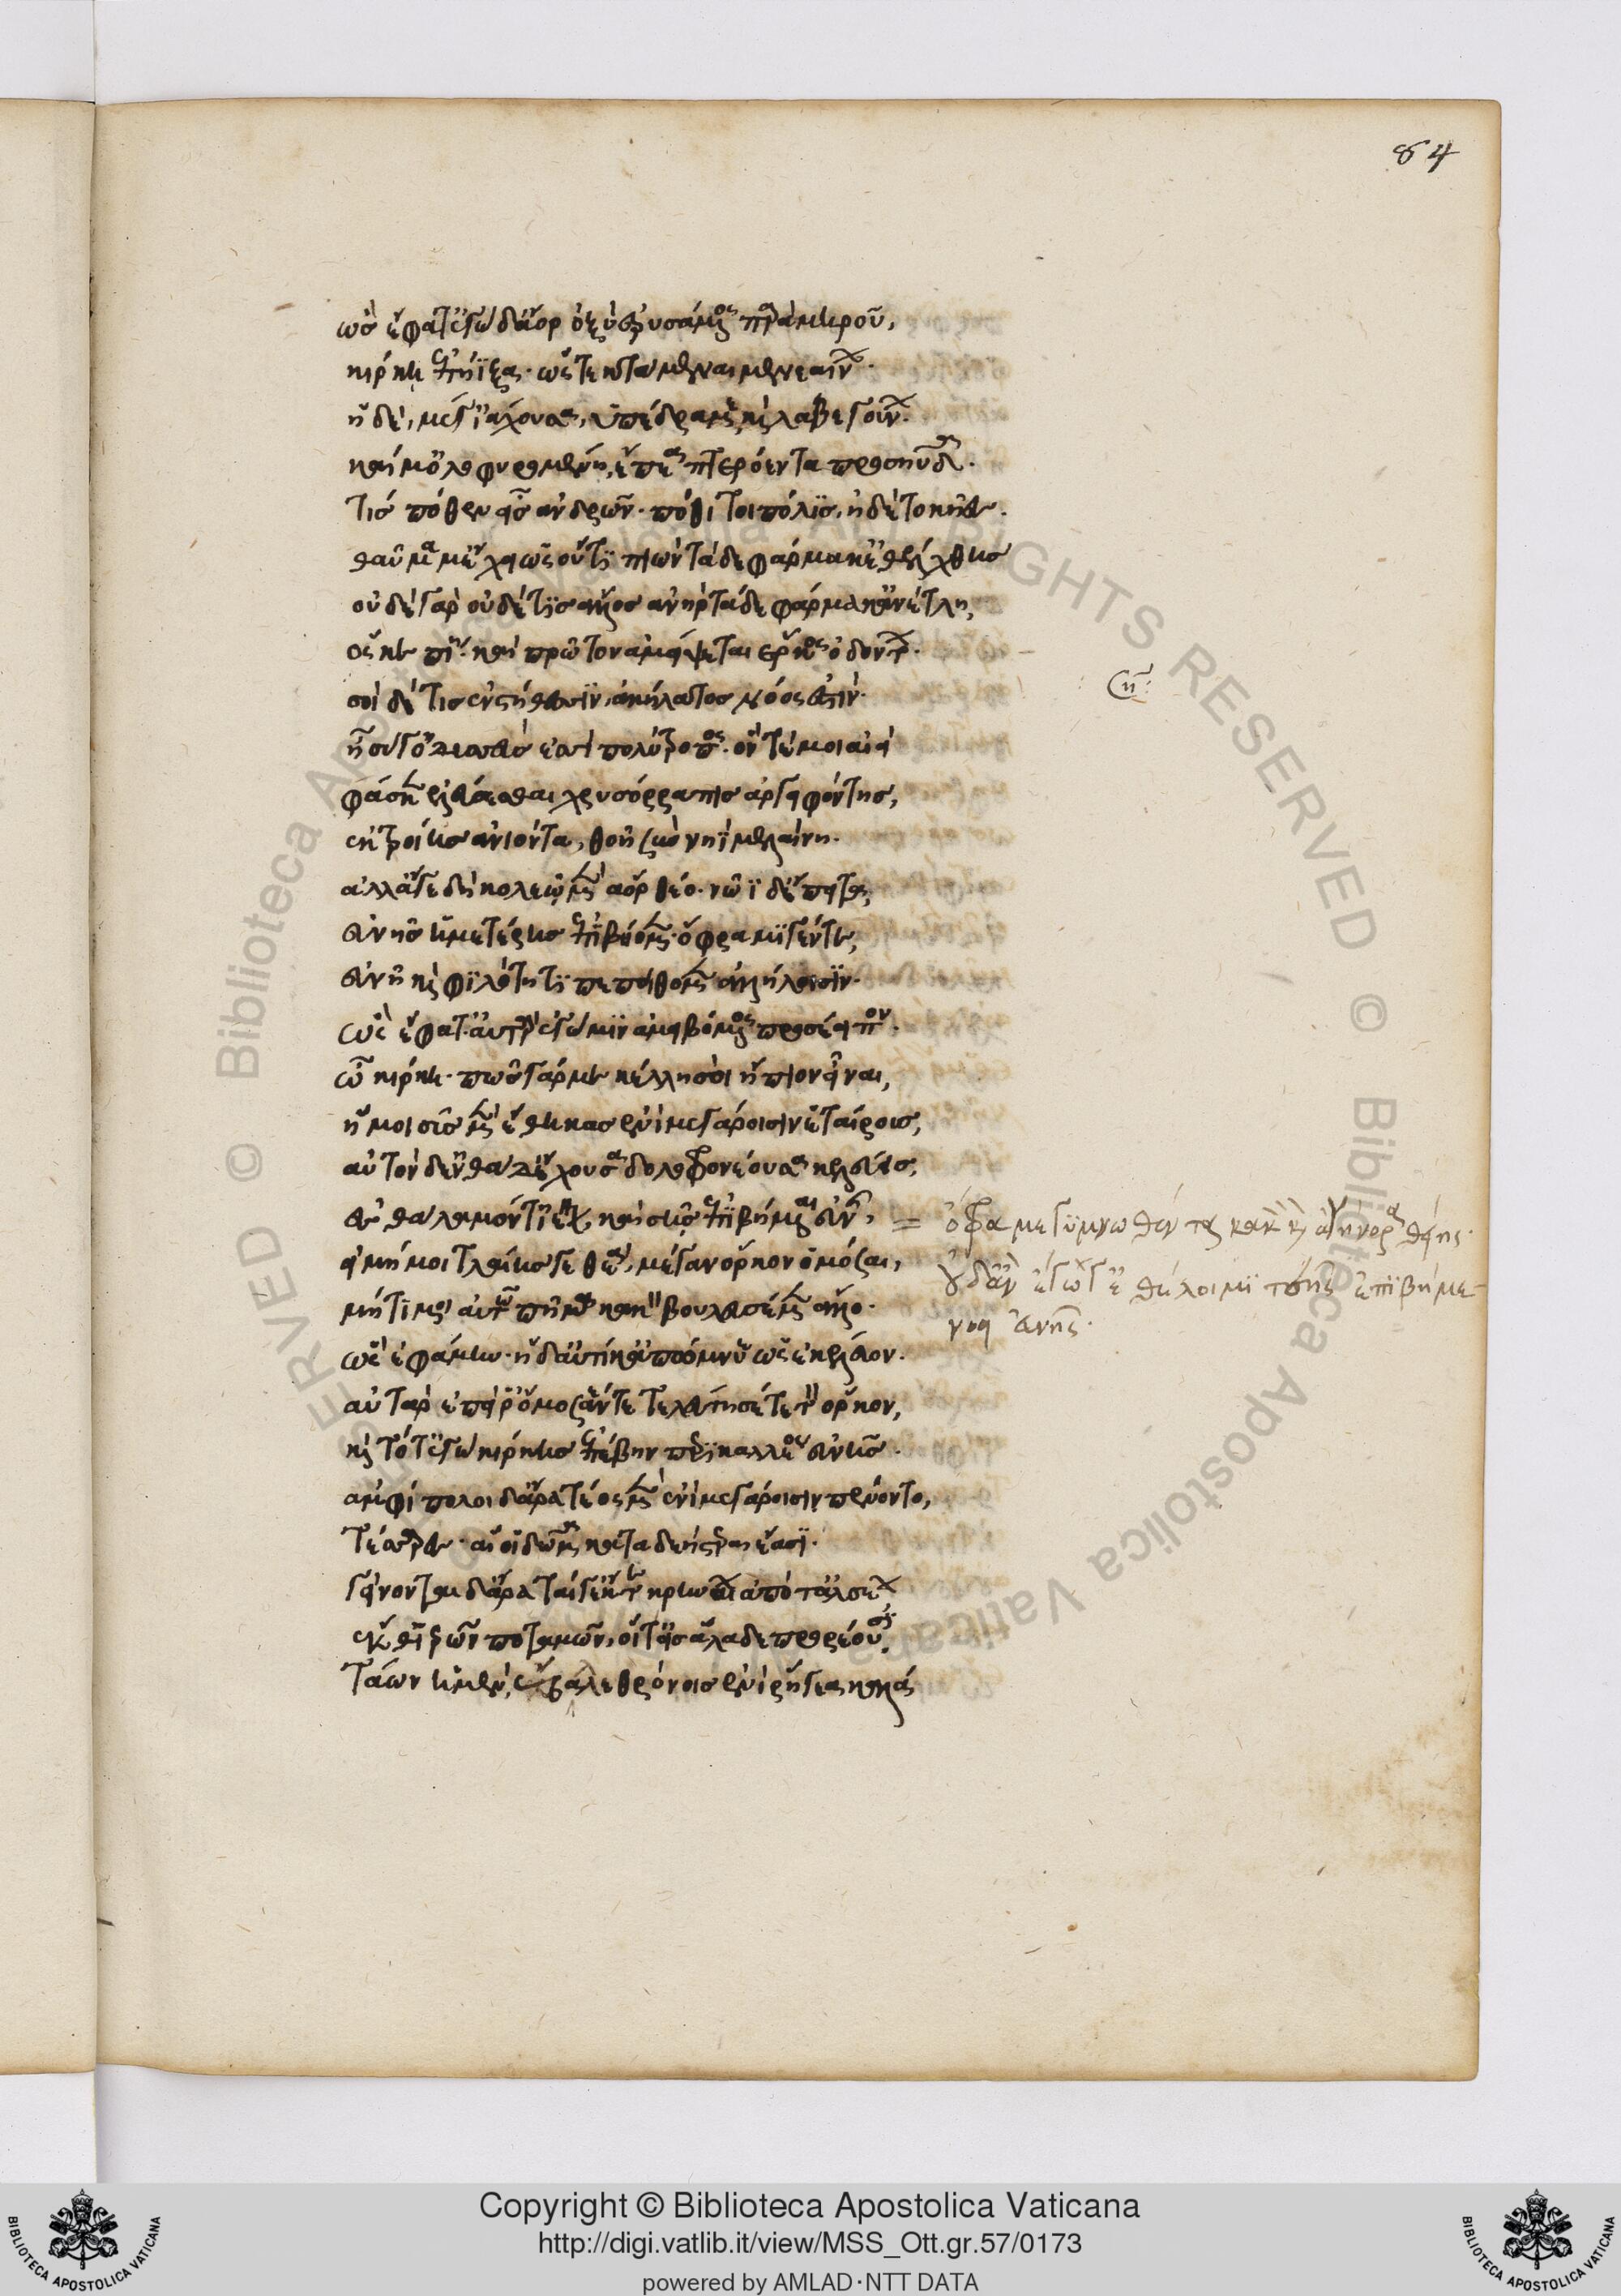 ὣς ἔφατ' ἐγὼ δ' ἄορ ὀξὺ ἐρυσάμενος παρὰ μηροῦ,
κίρκη ἐπήϊξα· ὥς τε κτάμεναι μενεαίνων·
ἡ δὲ, μέγ' ἰάχουσα, ὑπέδραμε καὶ λάβε γούνων·
καί μ' ὀλοφυρομένη, ἔπεα πτερόεντα προσηύδα·
τίς πόθεν εἶς ἀνδρῶν· πόθι τοι πόλϊς, ἠδὲ τοκῆες·
θαῦμά μ' ἔχει ὡς οὔτϊ πιὼν τάδε φάρμακ' ἐθέλχθης
οὐδὲ γὰρ οὐδέ τϊς ἄλλος ἀνὴρ τάδε φάρμακ' ἀνέτλη,
ὅς κε πίῃ· καὶ πρῶτον ἀμείψεται ἕρκος ὀδόντων·
σοὶ δέ τις ἐν στήθεσϊν, ἀκήλητος νόος ἐστίν·
ἦ σύ γ' ὀδυσσεύς ἐσσι πολύτροπος· ὅν τέ μοι αἰεὶ
φάσκεν ἐλεύσεσθαι χρυσόρραπις ἀργειφόντης,
ἐκ τροίης ἀνιόντα, θοῇ σὺν νηῒ μελαίνῃ·
ἀλλ' ἄγε δὴ κολεῷ μὲν ἄορ θέο· νῶϊ δ' ἔπειτα,
εὐνῆς ἡμετέρης ἐπϊβήομεν· ὄφρα μϊγέντε,
εὐνῇ καὶ φϊλότητϊ πεποίθομεν ἀλλήλοισϊν·
ὣς ἔφατ'· αὐτὰρ ἐγώ μϊν ἀμειβόμενος προσέειπον·
ὦ κίρκη· πῶς γάρ με κέλλῃ σοὶ ἤπιον εἶναι,
ἥ μοι σῦς μὲν ἔθηκας ἐνὶ μεγάροισιν ἑταίρους,
αὐτὸν δ' ἐνθάδ' ἔχουσα δολοφρονέουσα κελεύεις,
ἐς θάλαμόν τ' ἰέναι, καὶ σῆς ἐπϊβήμεναι εὐνῆς,
εἰ μή μοι τλαίης γε θεά, μέγαν ὅρκον ὀμόσσαι,
μήτϊ μοι αὐτῷ πῆμα κακὸν βουλευσέμεν ἄλλο·
ὣς ἐφάμην· ἡ δ' αὐτίκ' ἀπώμνυ ὡς ἐκέλευον·
αὐτὰρ ἐπεί ῥ' ὄμοσέν τε τελεύτησέν τε τὸν ὅρκον,
καὶ τότ' ἐγὼ κίρκης ἐπέβην περϊκαλλέος εὐνῆς·
ἀμφίπολοι δ' ἄρα τέος μὲν ἐνὶ μεγάροισιν πένοντο,
τέσσαρες· αἵ οἱ δῶμα κάτα δρήστειραι ἔασϊ·
γείνονται δ' ἄρα ταί γ' ἔκ τε κρηνέων ἀπό τ' ἀλσέων
ἔκ θ' ἱερῶν ποταμῶν, οἵ τ' εἰς ἅλαδε προρέουσϊ·
τάων ἡ μὲν, ἔβαλλε θρόνοις ἔνι ῥήγεα καλά
= ὄφρα με γϋμνωθέντα κακὸν καὶ ἀγήνορα θείης·
οὐδ' ἂν ἔγωγ' ἐθέλοιμϊ τεῆς ἐπϊβήμε-
ναι εὐνῆς·
64
Copyright © Biblioteca Apostolica Vaticana
http://digi.vatlib.it/view/MSS_Ott.gr.57/0173
powered by AMLAD·NTT DATA
BIBLIOTECA APOSTOLICA VATICANA
BIBLIOTECA APOSTOLICA VATICANA